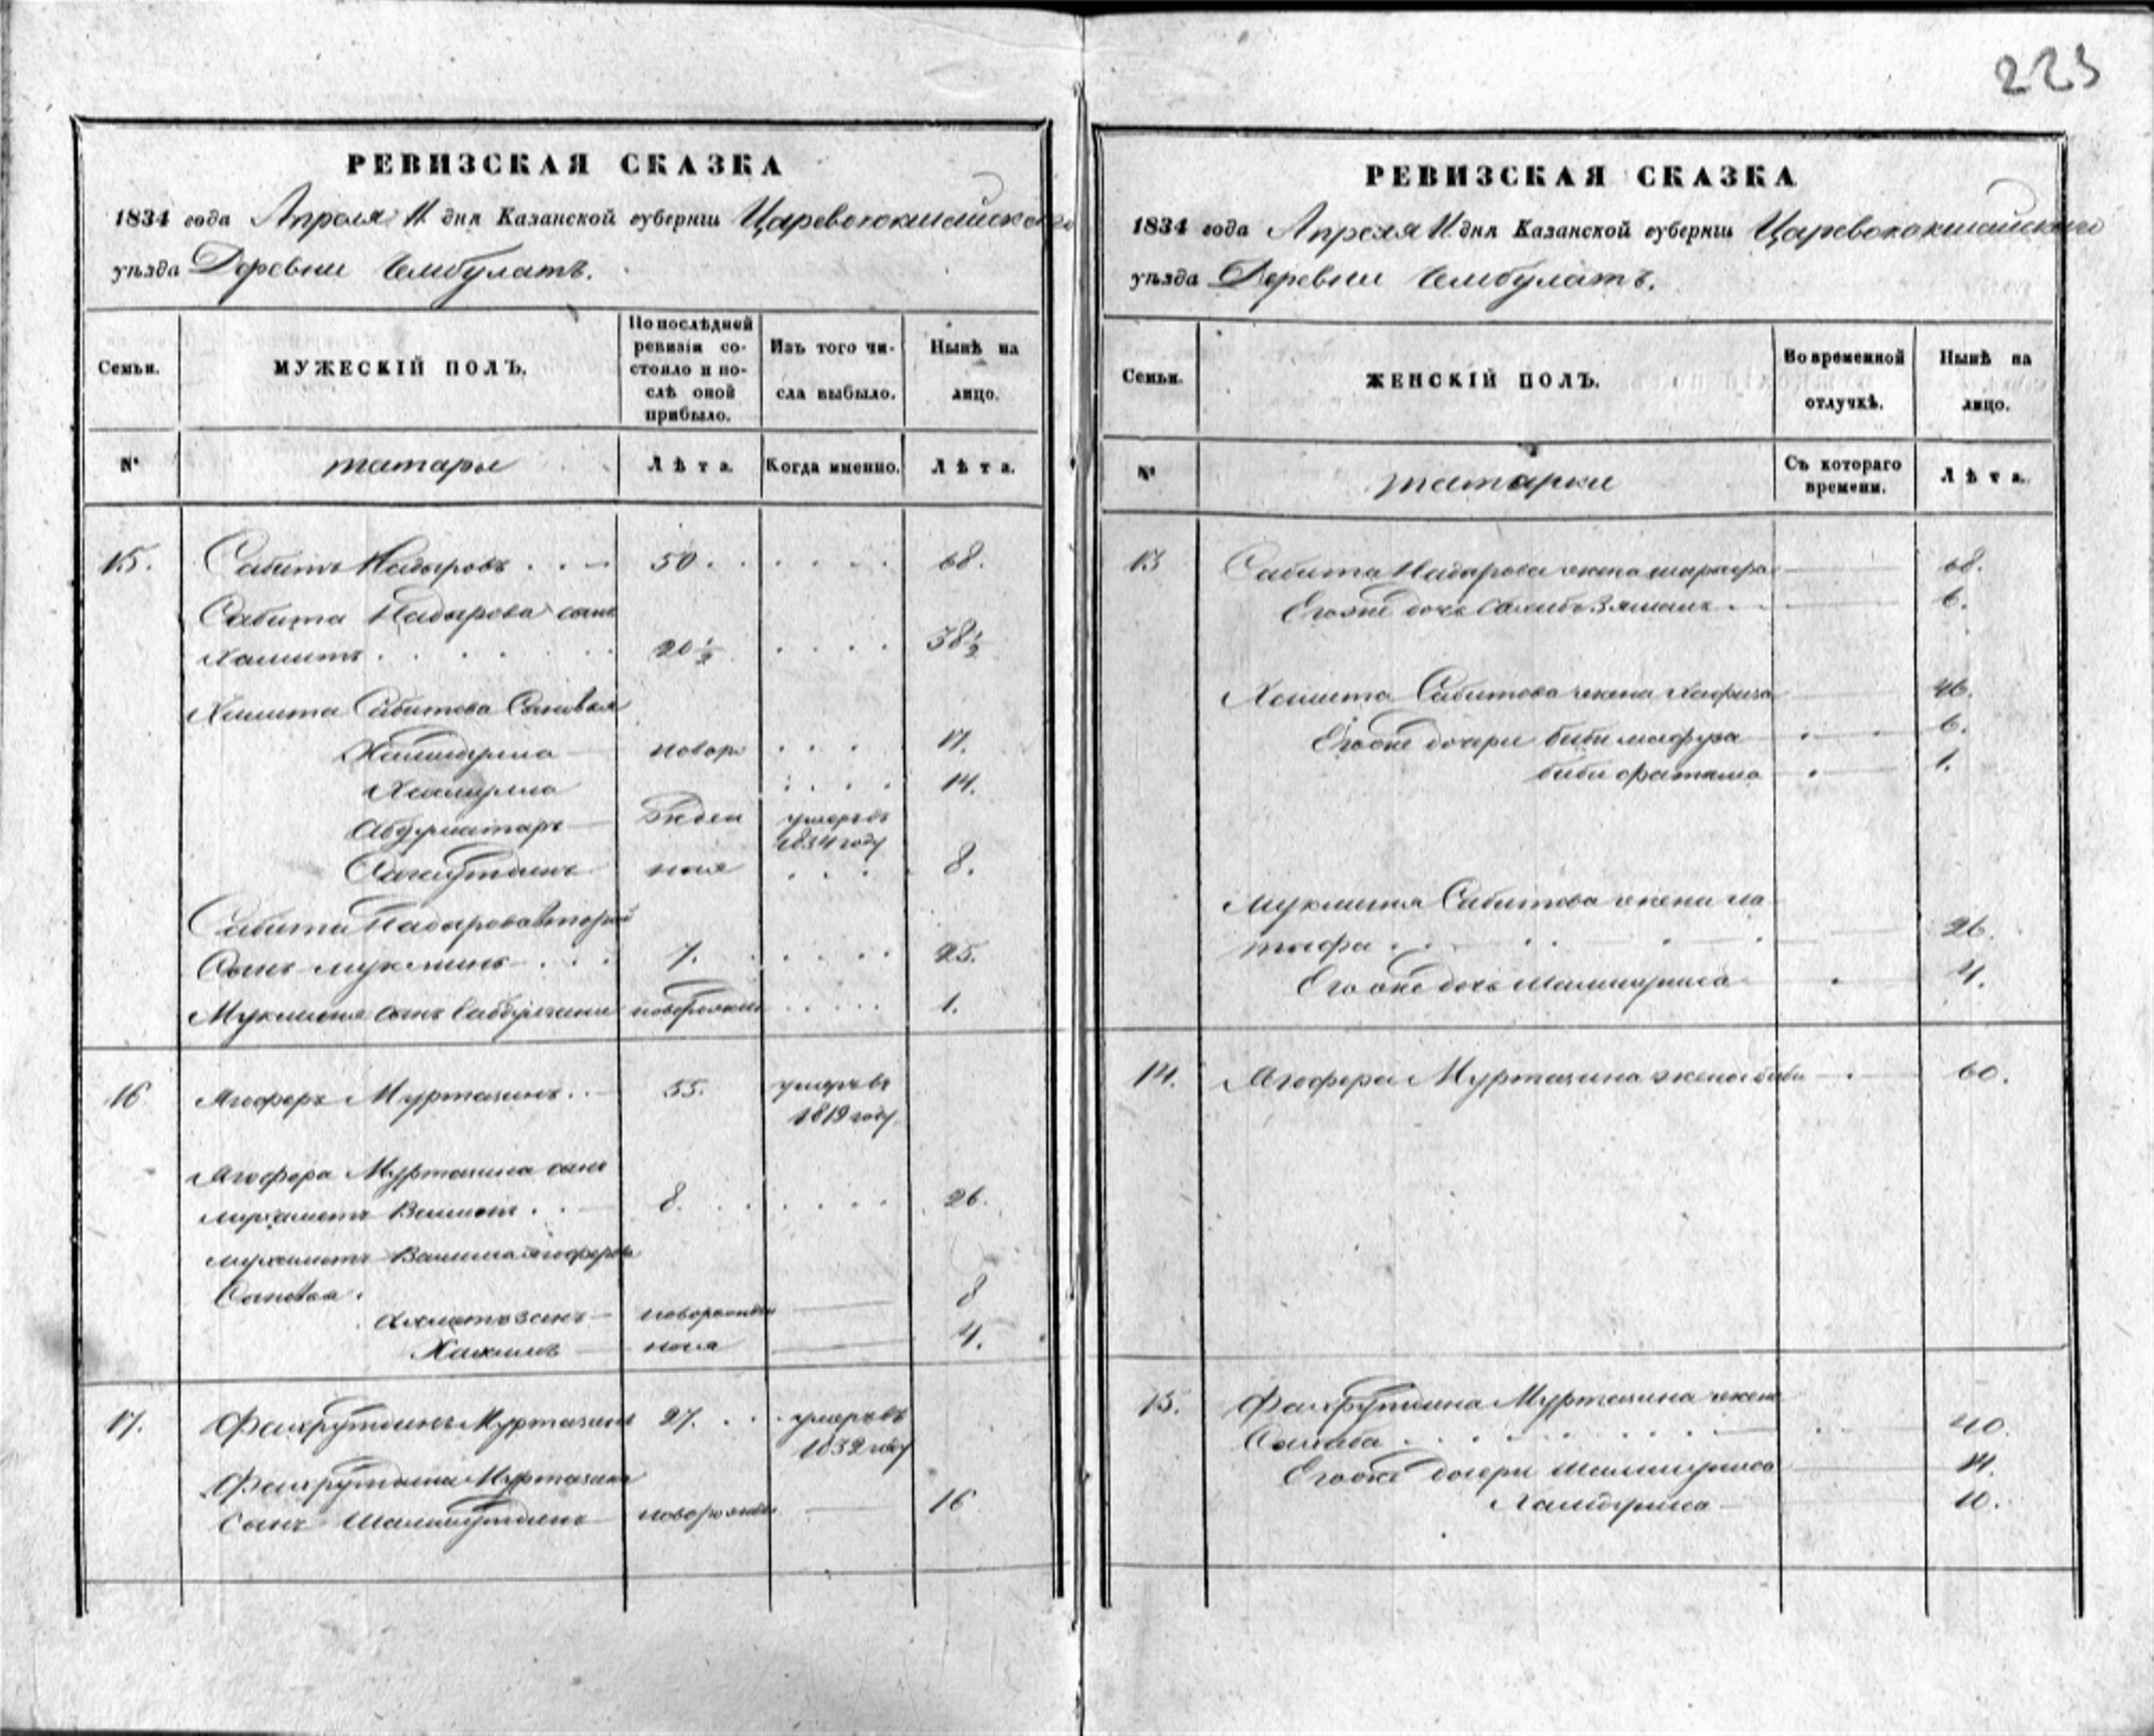 223
РЕВИЗСКАЯ СКАЗКА
1834 года Апреля 11 дня Казанской губерніи Царевококшайского
уѣзда Деревни Чембулатъ.
Семьи.
МУЖЕСКІЙ ПОЛЪ.
По послѣдней ревизіи состояло и послѣ оной прибыло.
Изъ того числа выбыло.
Нынѣ на лицо.
№
татары
Лѣта.
Когда именно.
Лѣта.
15. Сабитъ Надыровъ 50. 68.
Сабита Надырова сынъ
Хамитъ 20½ 38½
Хамита Сабитова Сыновья
новорож 17.
14.
Абдулматаръ умеръ въ 1834 году
8.
Сабита Надырова второй
Сынъ Мукминъ 7. 25.
Мукминя сынъ новорожден 1.
16 Ягоферъ Муртазинъ. 55. умеръ въ
1819 году.
Ягофера Муртазина сынъ
Мухаметъ Валитъ. 8. 26.
Сыновья.
Ахметзянъ новорожден 8
ная 4.
17. Фахрутдинъ Муртазинъ 27. умеръ въ
1832 году
Фахрутдина Муртазина
Сынъ новорожден 16
РЕВИЗСКАЯ СКАЗКА
1834 года Апреля 11 дня Казанской губерніи Царевококшайского
уѣзда Деревни Чембулатъ.
Семьи.
ЖЕНСКІЙ ПОЛЪ.
Во временной отлучкѣ.
Нынѣ на лицо.
№
татарки
Съ котораго времени.
Лѣта.
13 Сабита Надырова жена 68.
Его же дочь 6.
Хамита Сабитова жена Хафиза 46.
Его же дочери биби 6.
биби фатима 1.
Мукминя Сабитова жена
26.
Его же дочь 4.
14. Ягофера Муртазина жена биби 60.
15. Фахрутдина Муртазина жена
Сахиба 40.
Его же дочери 14.
10.